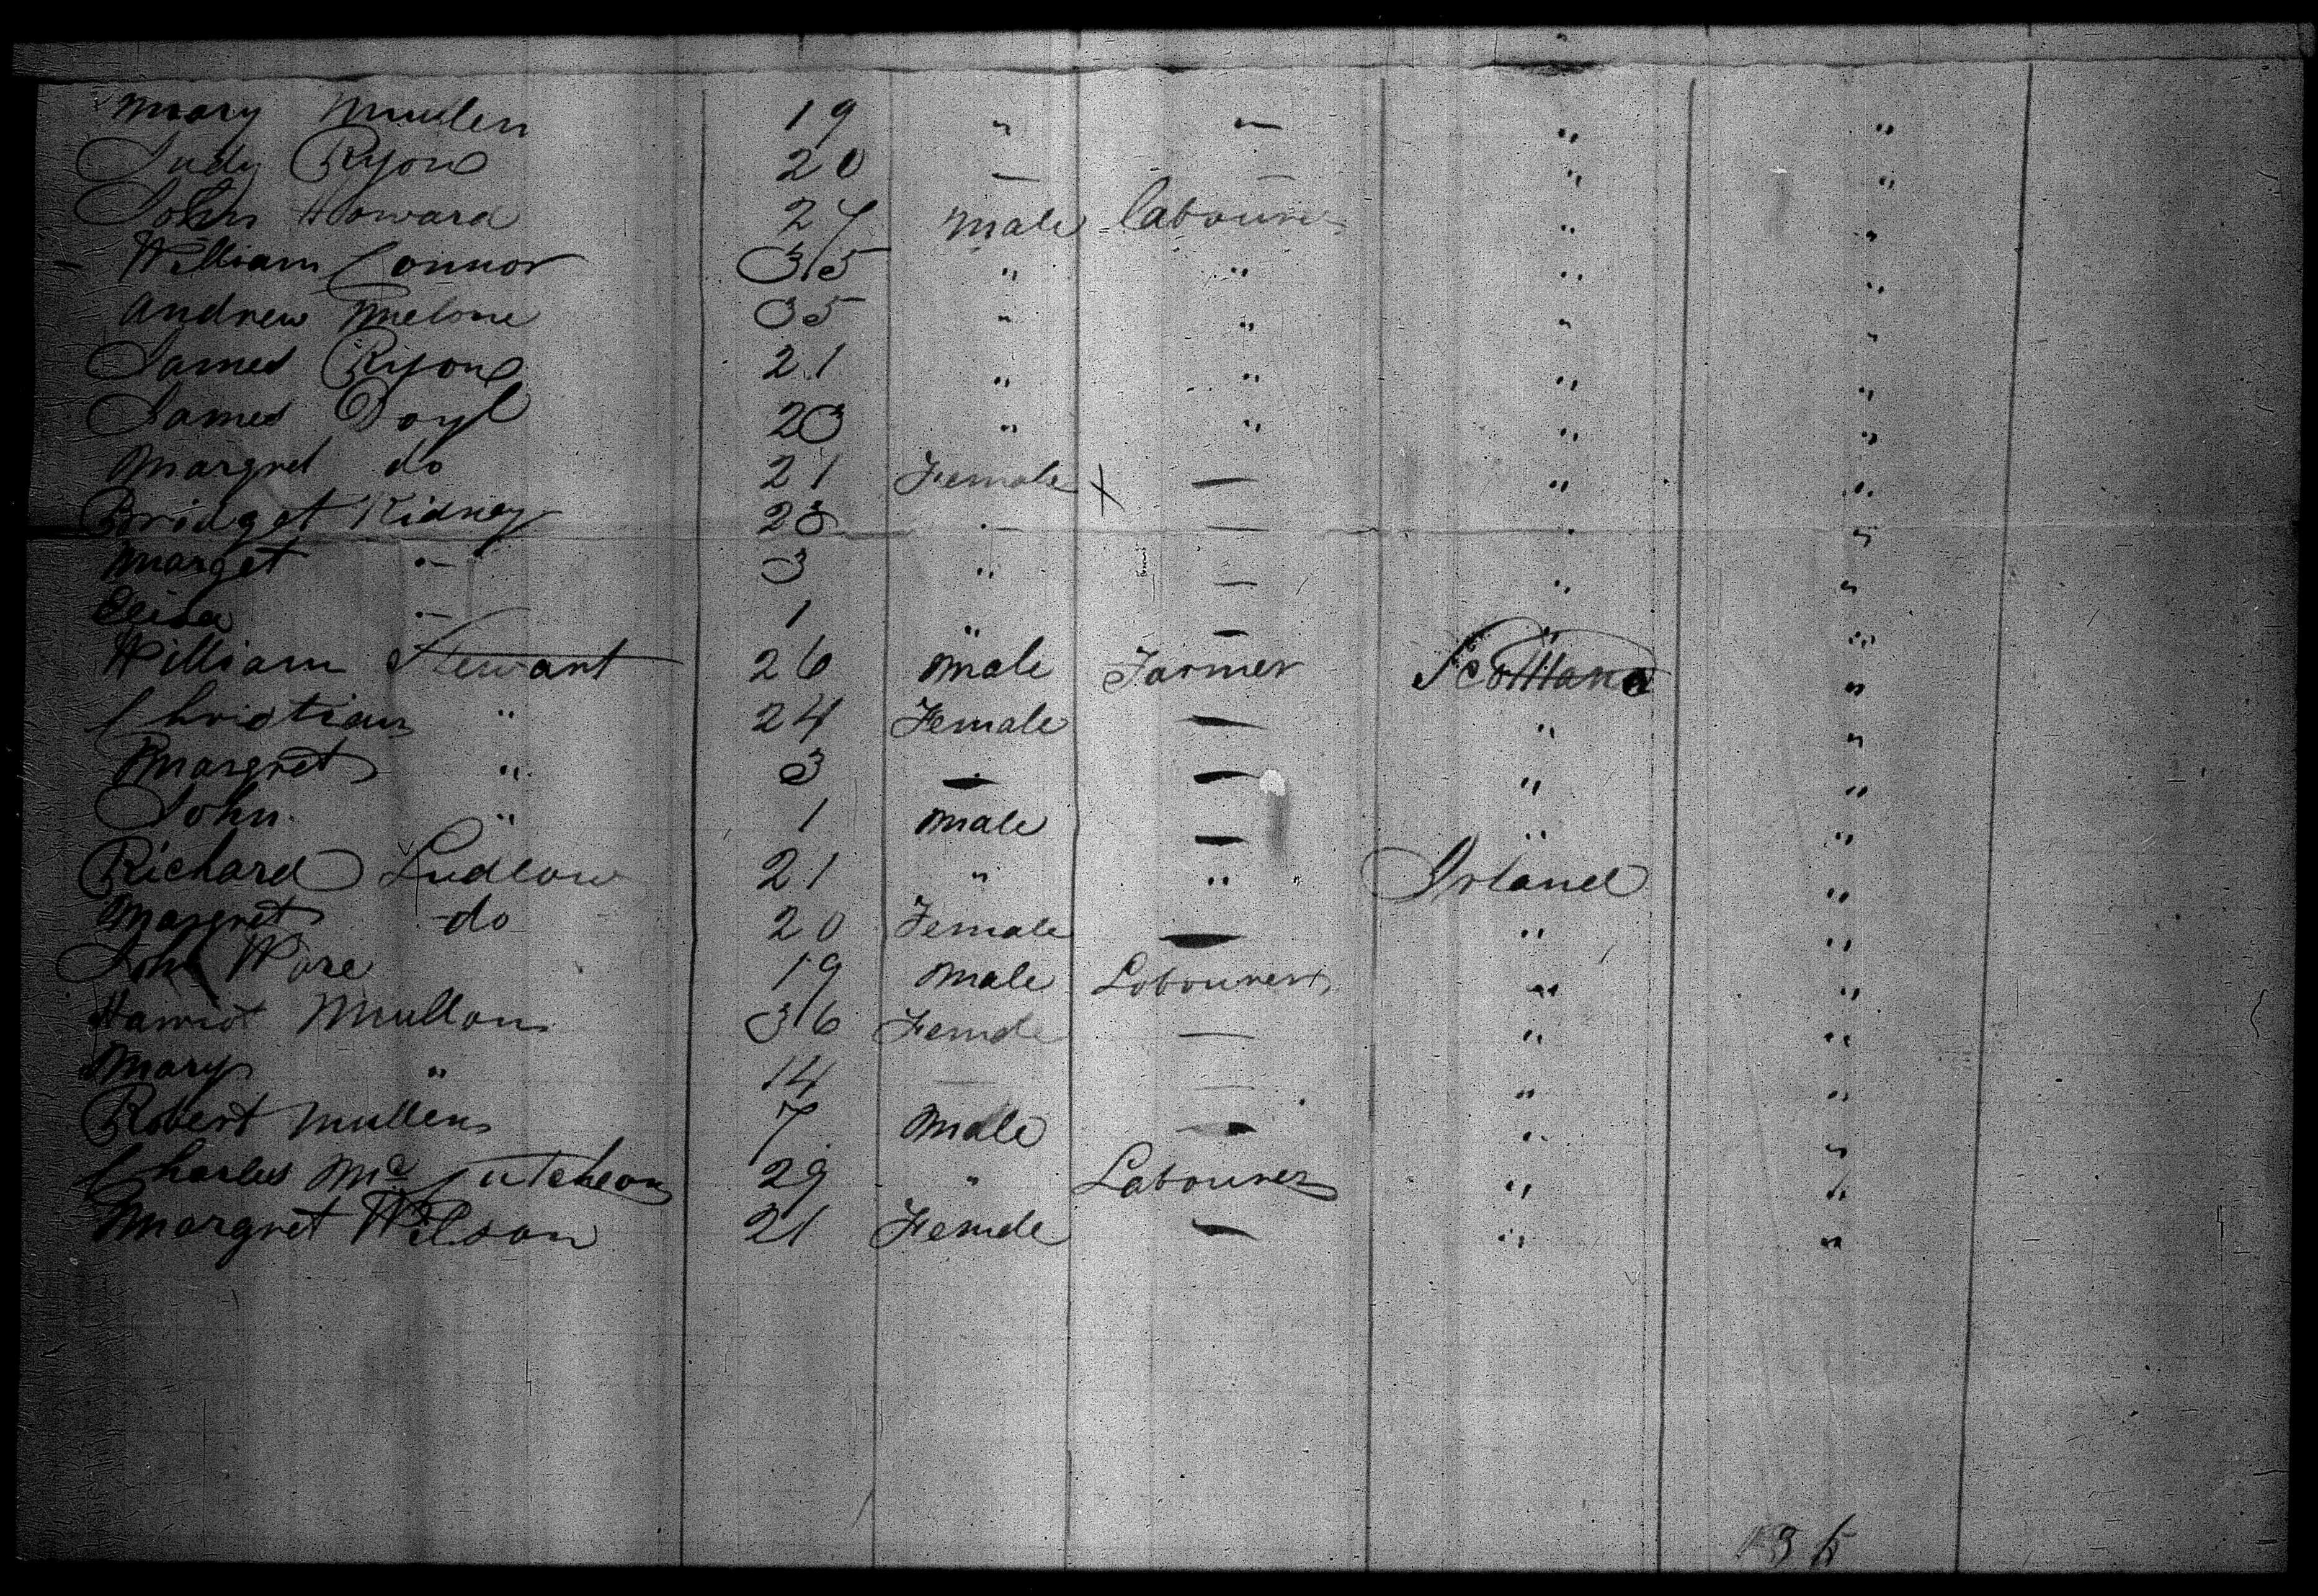 Mary Mullen 19 " — " "
Judy Ryon 20 — — " "
John Howard 27 Male labourer " "
William Connor 35 " " " "
Andrew Melone 35 " " " "
James Ryon 21 " " " "
James Doyl 23 " " " "
Margret do 21 Female + — " "
Bridget Kidney 23 " — " "
Marget " 3 " — " "
Elisa " 1 " — " "
William Stewart 26 Male Farmer Scottland "
Christian " 24 Female — " "
Margret " 3 — — " "
John " 1 Male — " "
Richard Ludlow 21 " " Irland "
Margret do 20 Female — " "
John Ware 19 Male Labourer " "
Harriot Mullon 36 Female — " "
Mary " 14 — — " "
Robert Mullen 7 Male — " "
Charles Mc Cutcheon 29 " Labourer " "
Margret Wilson 21 Female — " "